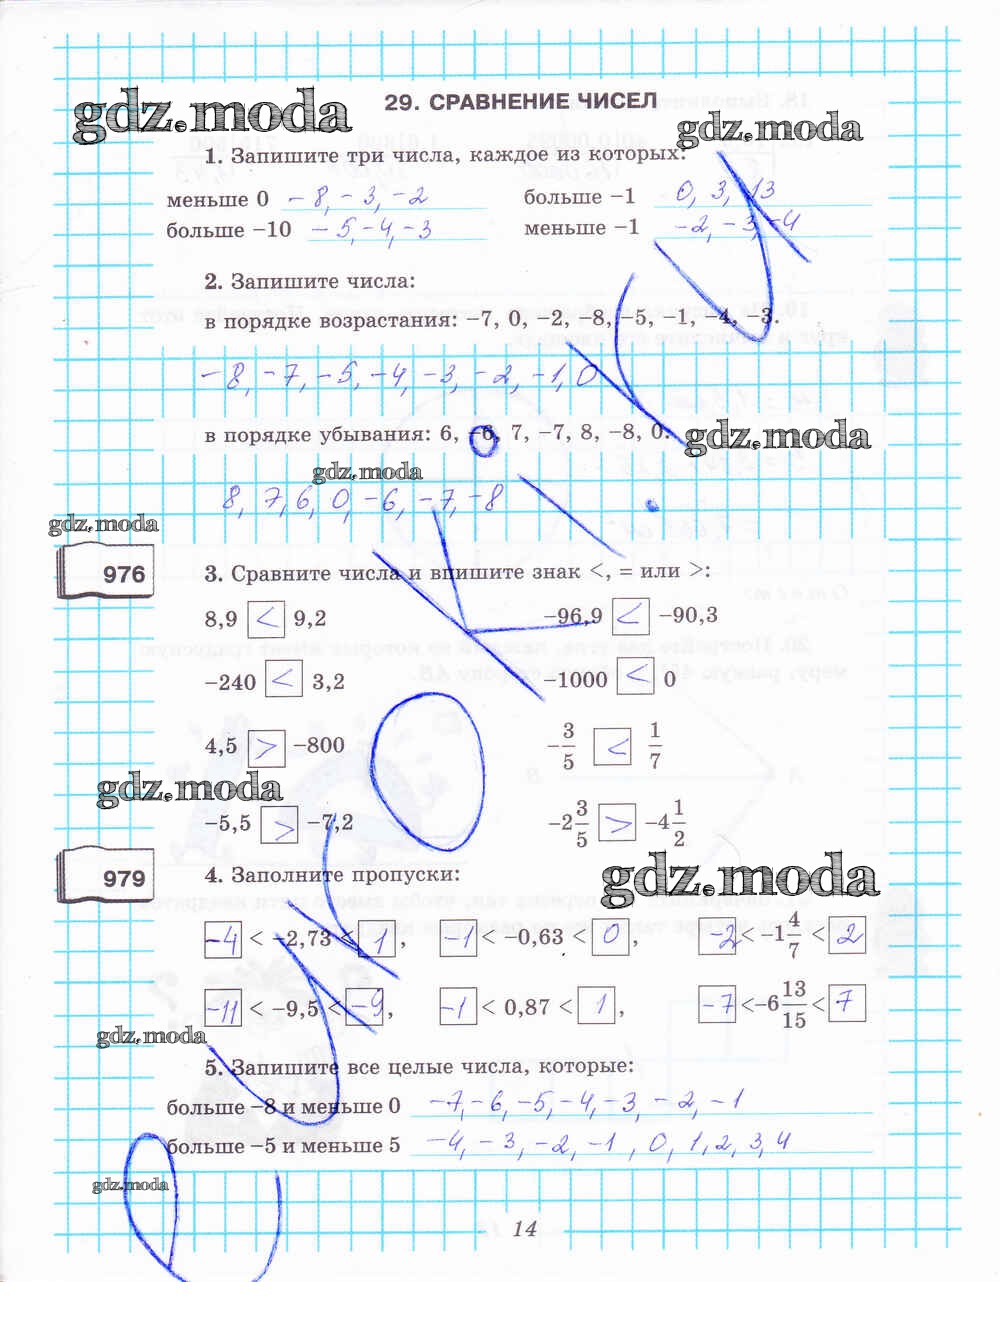 29. СРАВНЕНИЕ ЧИСЕЛ
gdz.moda
gdz.moda
1. Запишите три числа, каждое из которых:
меньше 0 −8, −3, −2 больше −1 0, 3, 13
больше −10 −5, −4, −3 меньше −1 −2, −3, −4
2. Запишите числа:
в порядке возрастания: −7, 0, −2, −8, −5, −1, −4, −3.
−8, −7, −5, −4, −3, −2, −1, 0
в порядке убывания: 6, −6, 7, −7, 8, −8, 0.
gdz.moda
gdz.moda
8, 7, 6, 0, −6, −7, −8
gdz.moda
976
3. Сравните числа и впишите знак <, = или >:
8,9 < 9,2 −96,9 < −90,3
−240 < 3,2 −1000 < 0
4,5 > −800 −3/5 < 1/7
gdz.moda
−5,5 > −7,2 −2 3/5 > −4 1/2
979
4. Заполните пропуски:
gdz.moda
−4 < −2,73 < 1, −1 < −0,63 < 0, −2 < −1 4/7 < 2
−11 < −9,5 < −9, −1 < 0,87 < 1, −7 < −6 13/15 < 7
gdz.moda
5. Запишите все целые числа, которые:
больше −8 и меньше 0 −7, −6, −5, −4, −3, −2, −1
больше −5 и меньше 5 −4, −3, −2, −1, 0, 1, 2, 3, 4
gdz.moda
14